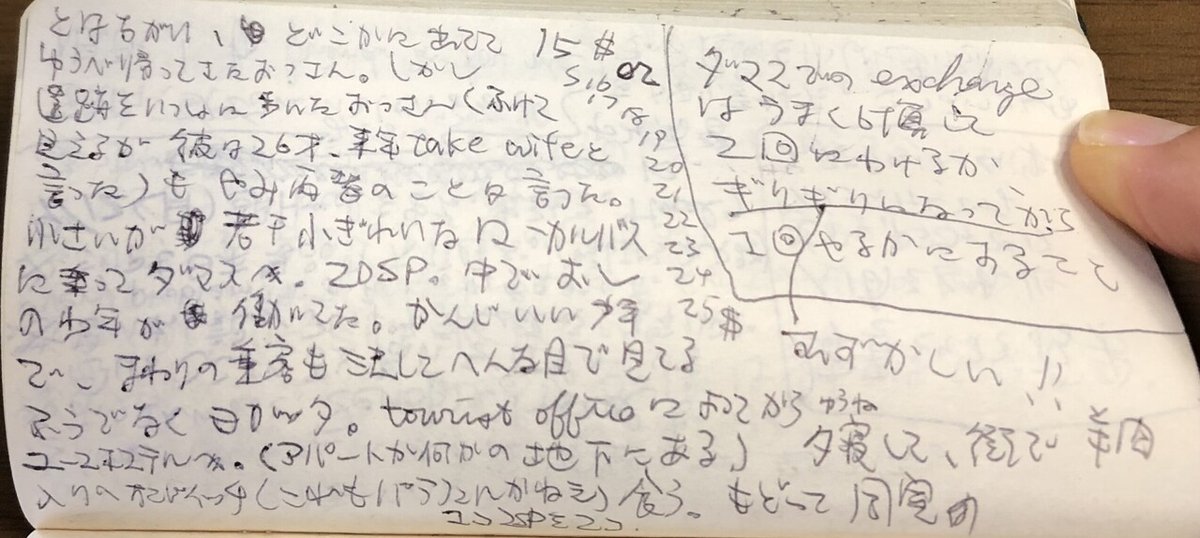 とはちがい、どこかに出てて
ゆうべ帰ってきたおっさん。しかし
遺跡をいっしょに歩いたおっさん(ふけて
見えるが彼は26才、来年take wifeと
言った)もやみ両替のことは言った。
小さいが若干小ぎれいなローカルバス
に乗ってダマスへ。20SP。中でおし
の少年が働いてた。かんじいい少年
で、まわりの乗客も決してへんな目で見てる
ふうでなくヨカッタ。tourist officeによってから
ユースホステルへ。(アパートか何かの地下にある)夕寝して、街で羊肉
入りの(これも)食う。もどって同室の
15$ or
16
17
18
19
20
21
22
23
24
25$
ダマスでのexchange
はうまく計算して
2回にわけるか
ぎりぎりになってから
1回やるかにあるてて
むずかしい!!